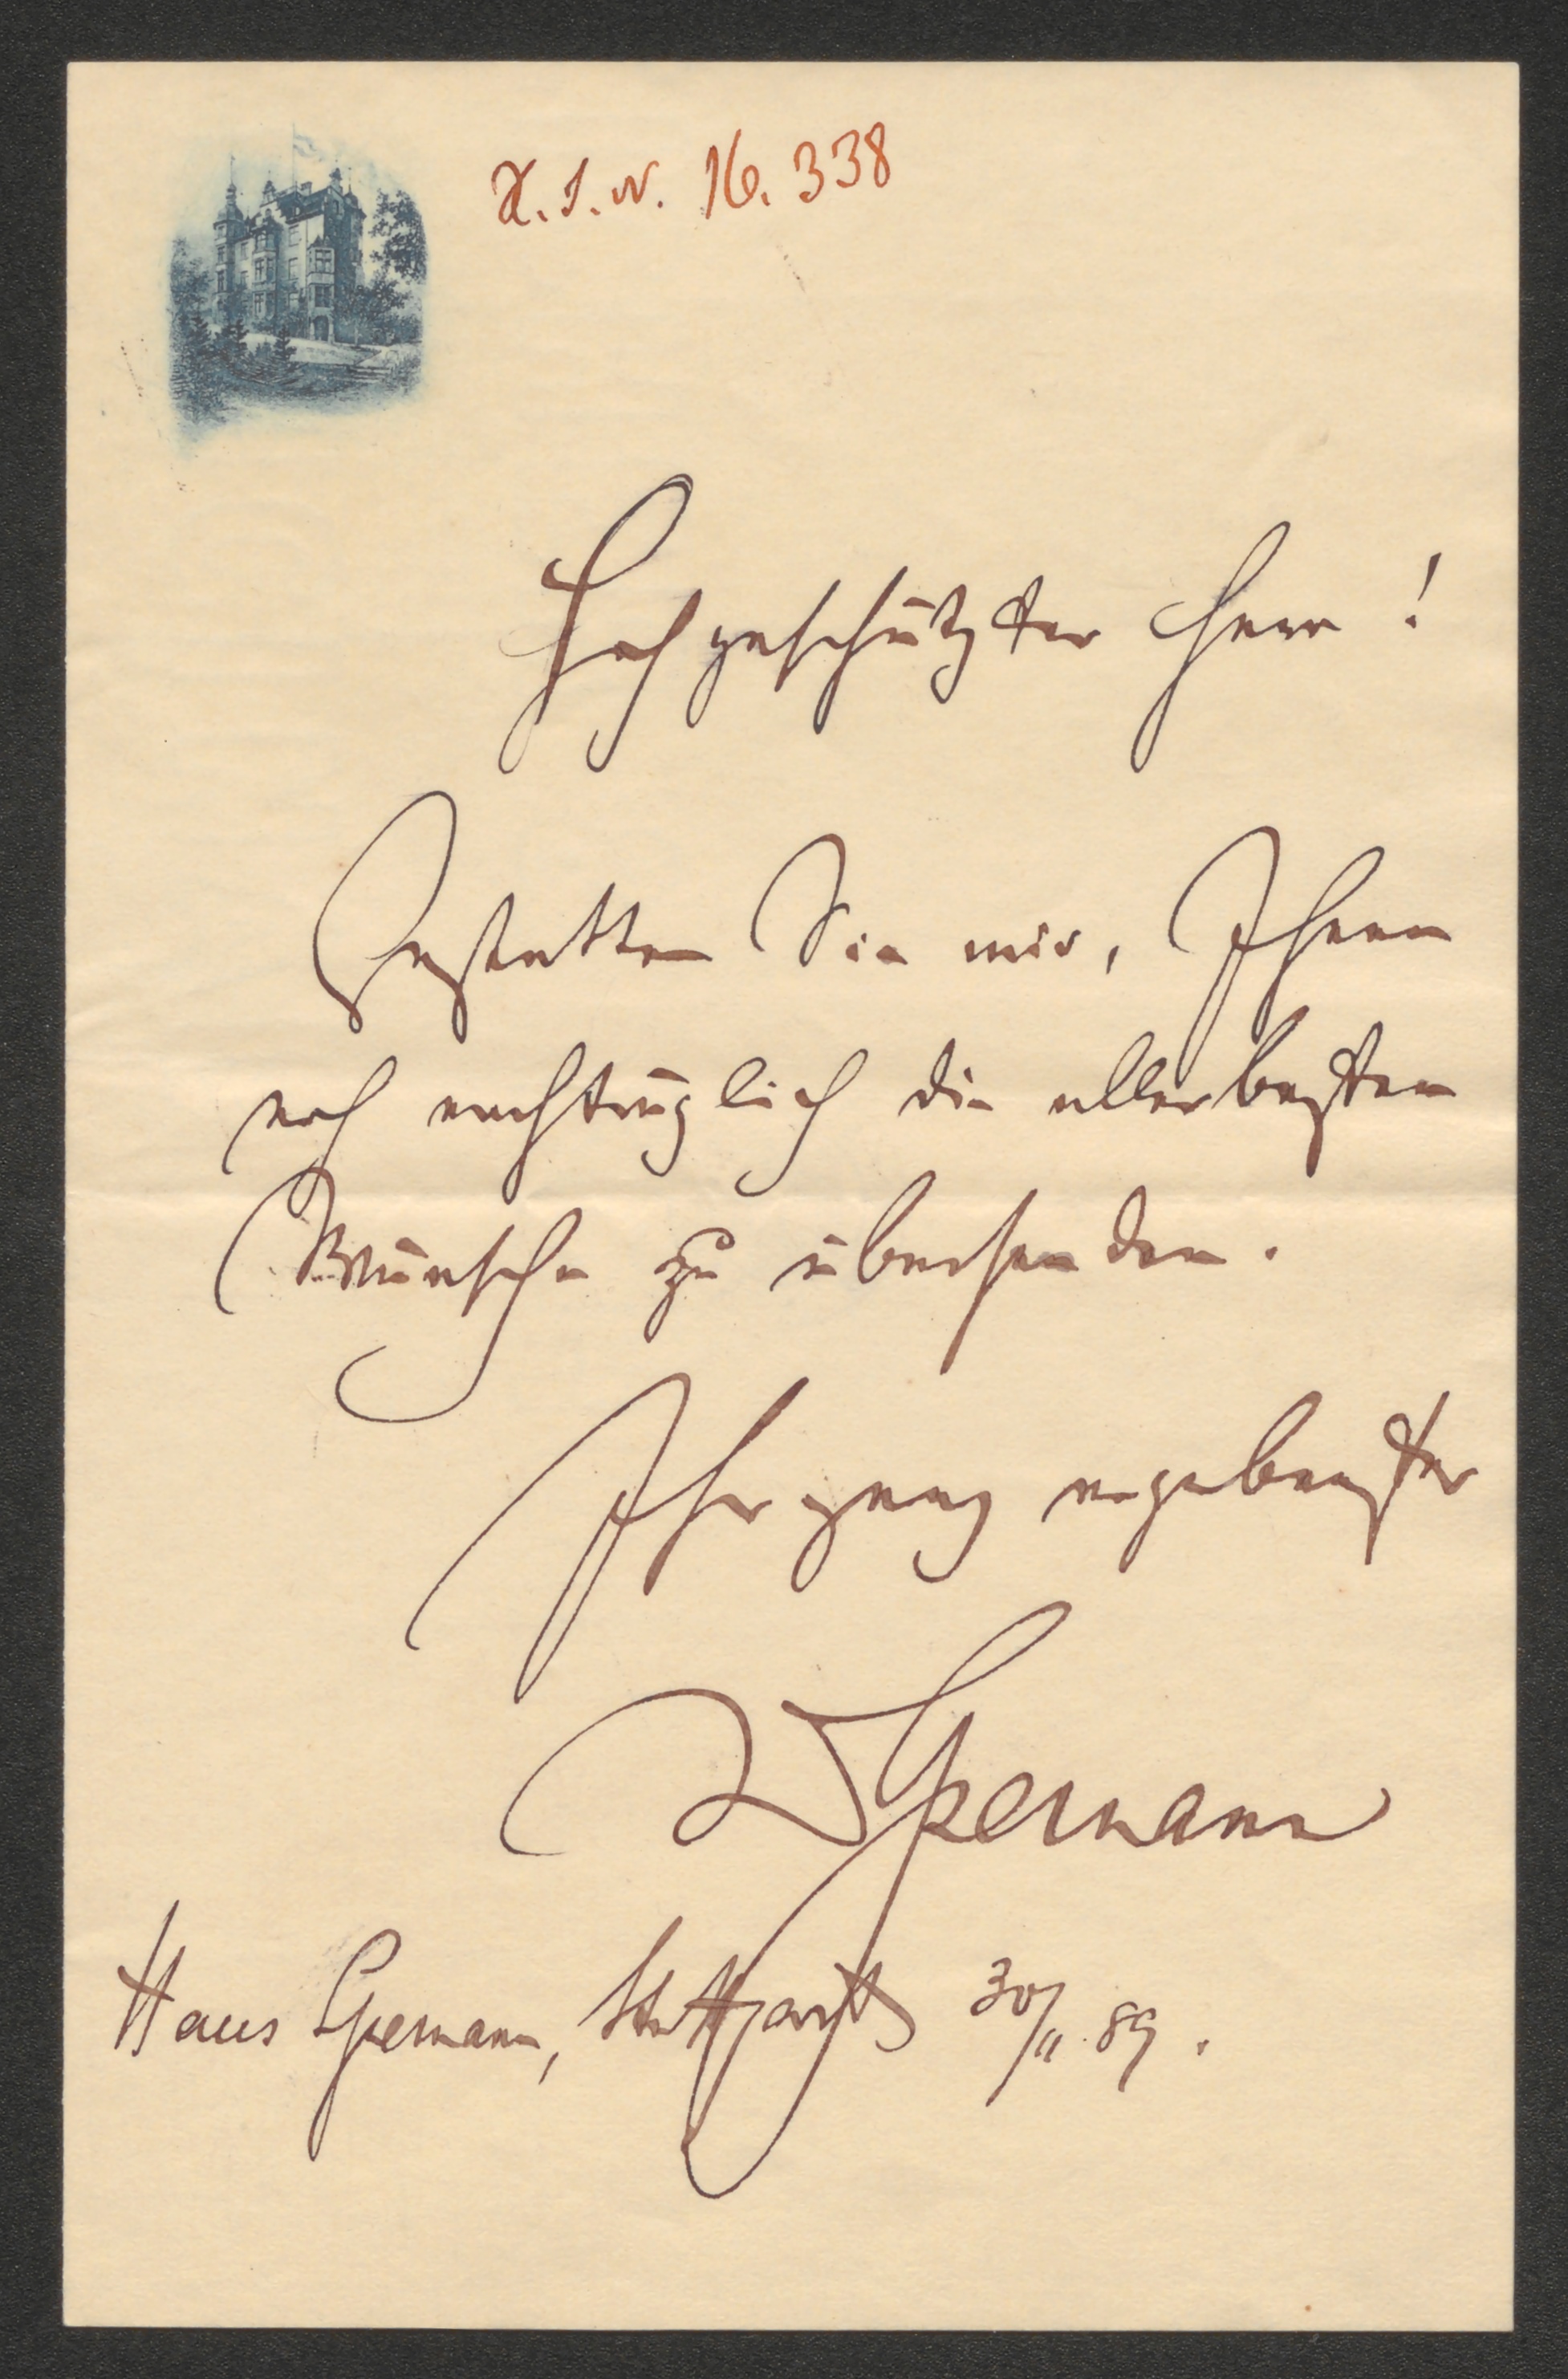 H.I.N. 16.338
Hochgeschätzter Herr!
Gestatten Sie mir, Ihnen
noch nachträglich die allerbesten
Wünsche zu übersenden.
Ihr ganz ergebenster
WSpemann
Haus Spemann, Stuttgart 30/11.89.